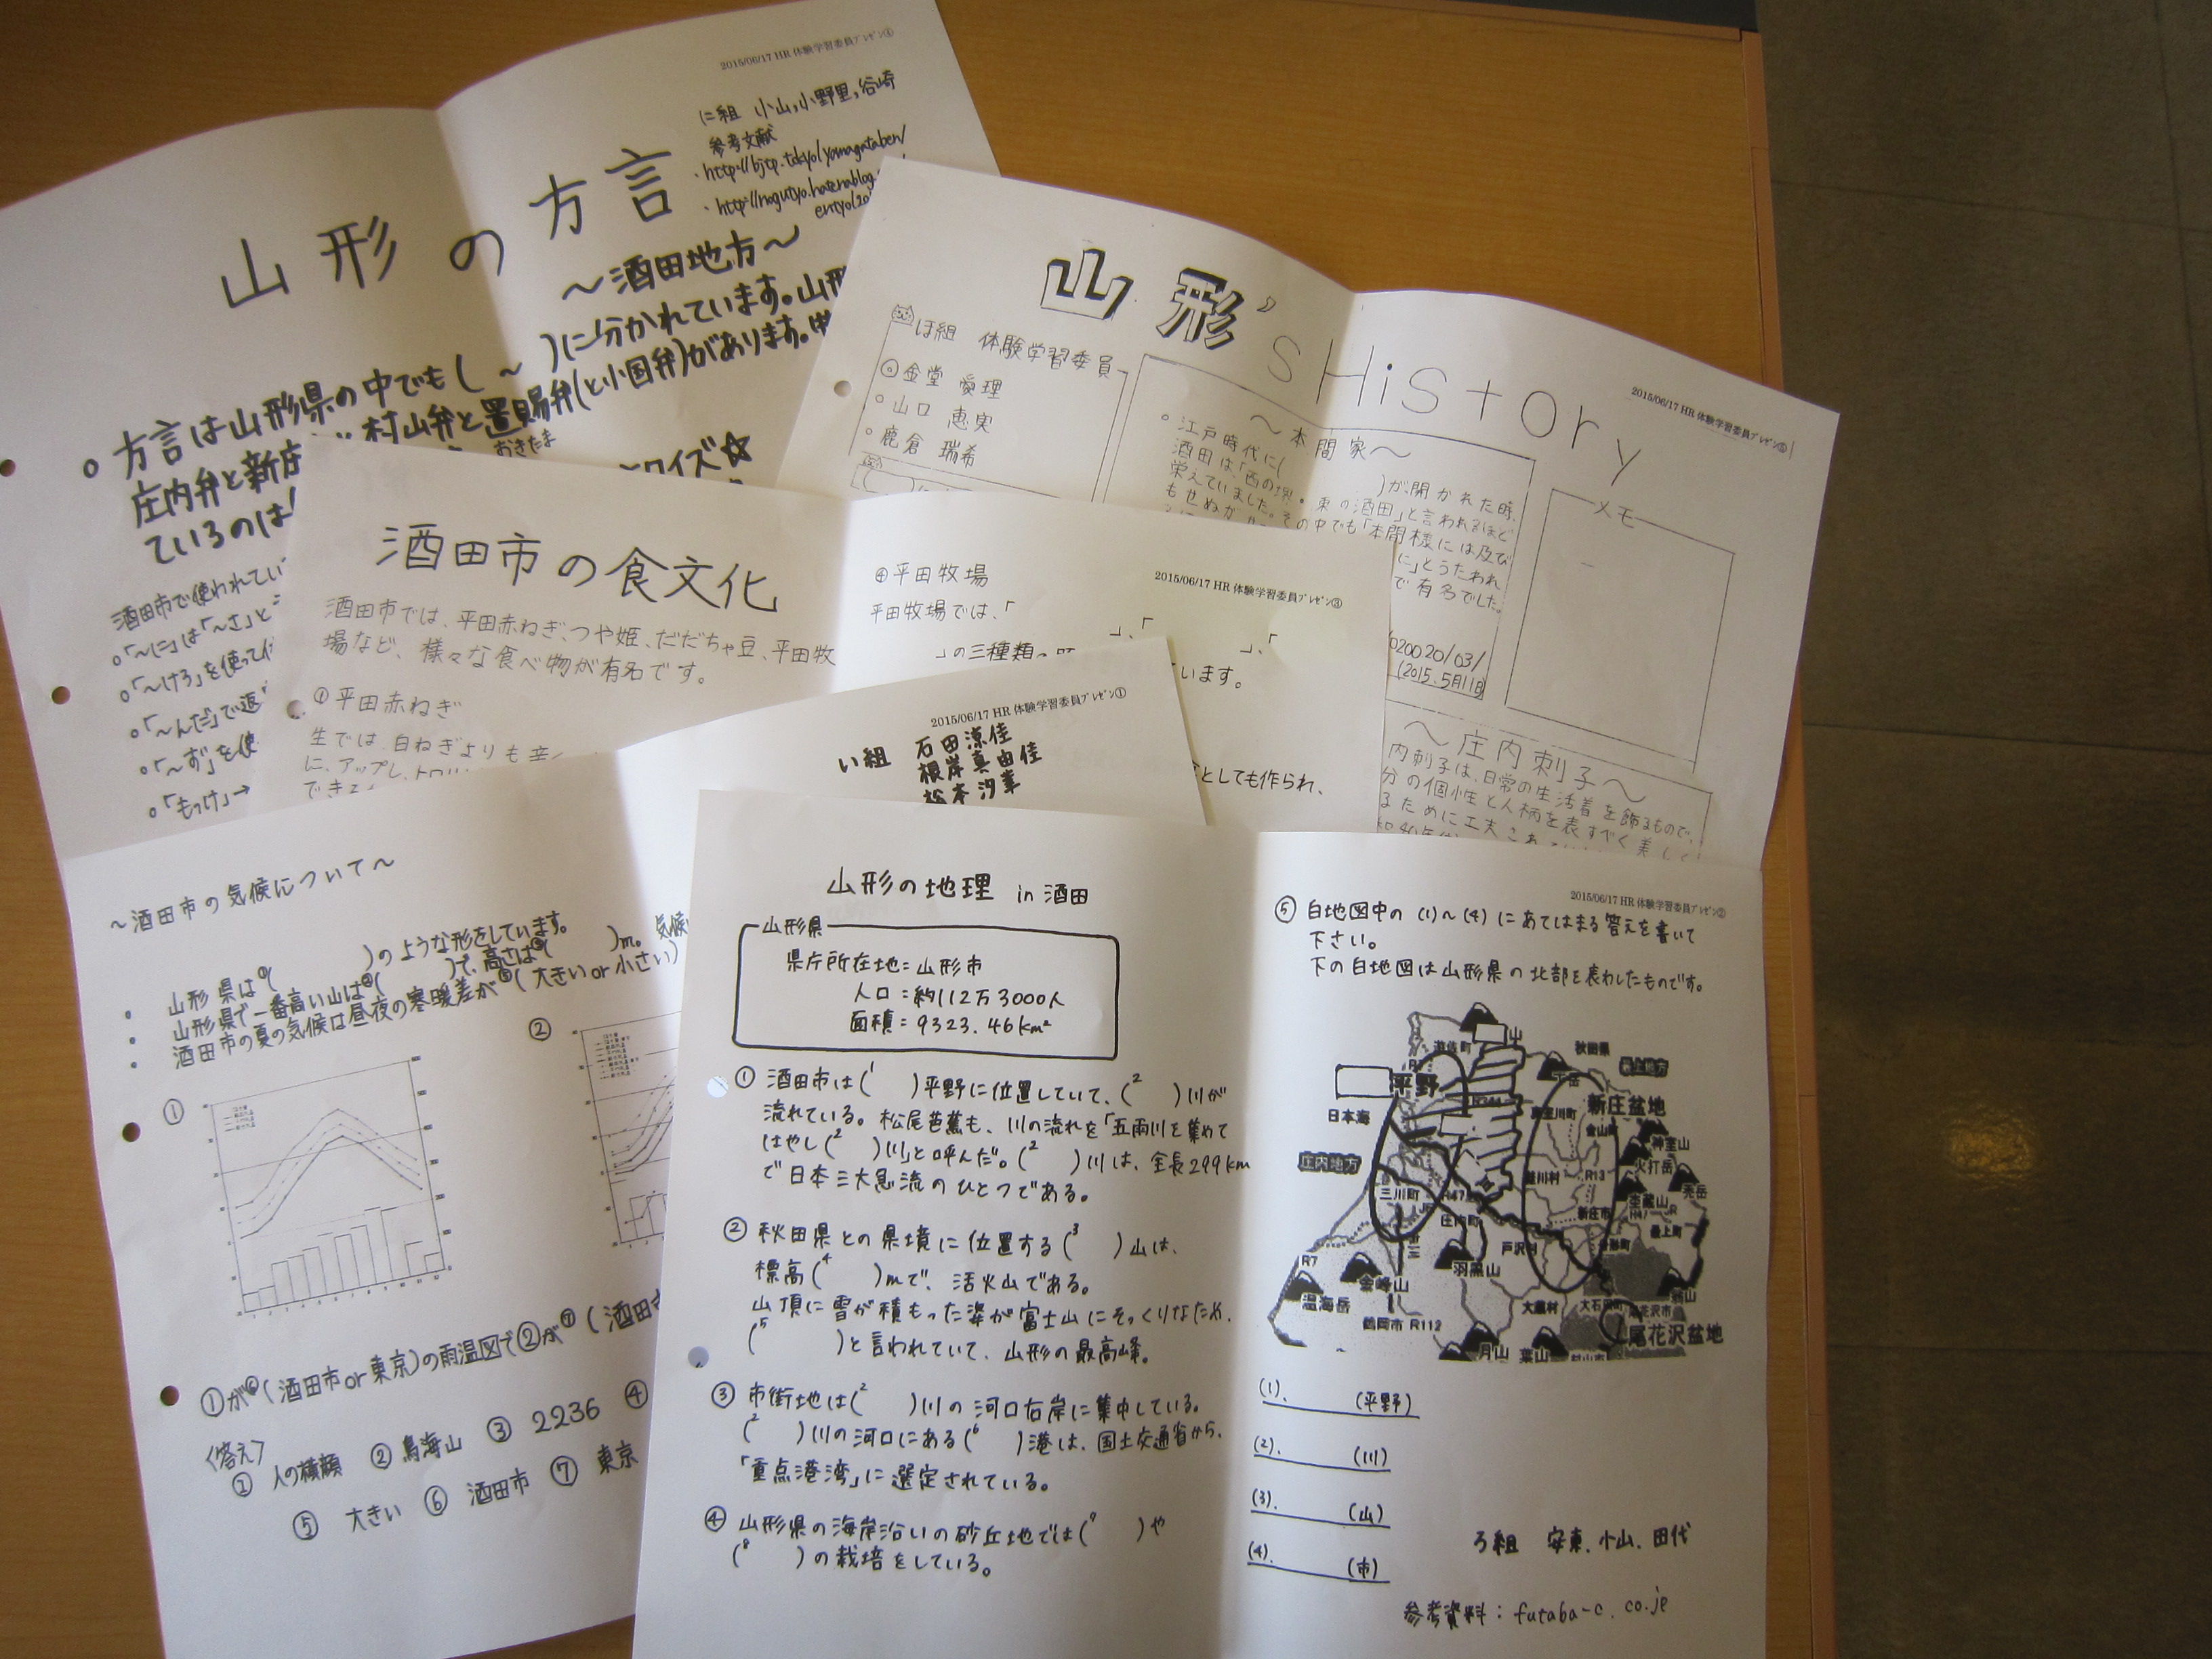 2015/06/17 HR 体験学習委員プレゼン④
に組 小山,小野里,谷崎
参考文献
・http://bjtp.tokyo/yamagataben/
・http://nogutyo.hatenablog.
山形の方言
～酒田地方～
方言は山形県の中でも(～)に分かれています。山形
庄内弁と新庄 村山弁と置賜弁(と小国弁)があります。
おきたま
ているのは
クイズ☆
酒田市で使われてい
「～に」は「～さ」と
「～けろ」を使って
「～んだ」で返
「～ず」を使
「もっけ」→
山形's History
2015/06/17 HR 体験学習委員プレゼン⑤
ほ組 体験学習委員
◎金堂 愛理
山口 恵実
鹿倉 瑞希
～本間家～
江戸時代に( )が開かれた時、
酒田は、「西の堺。東の酒田」と言われるほど
栄えていました。その中でも「本間様には及び
もせぬが に」とうたわれ
で有名でした。
020020/03/
(2015.5月11日
メモ
～庄内刺子～
内刺子は、日常の生活着を飾るもので、
分の個性と人柄を表すべく美しく
るために工夫
酒田市の食文化
酒田市では、平田赤ねぎ、つや姫、だだちゃ豆、平田牧
場など、様々な食べ物が有名です。
①平田赤ねぎ
生では、白ねぎよりも辛
に、アップし、
でき
④平田牧場
2015/06/17 HR 体験学習委員プレゼン③
平田牧場では、「
」、「 」、「
」の三種類
います。
としても作られ、
2015/06/17 HR 体験学習委員プレゼン①
い組 石田涼佳
根岸真由佳
松本汐
～酒田市の気候について～
・山形県は①( )のような形をしています。
・山形県で一番高い山は②( )で、高さは③( )m。気候
・酒田市の夏の気候は昼夜の寒暖差が⑤(大きいor小さい)
①
②
①が⑥(酒田市or東京)の雨温図で②が⑦(酒田
<答え>
① 人の横顔 ② 鳥海山 ③ 2236 ④
⑤ 大きい ⑥ 酒田市 ⑦ 東京
山形の地理 in 酒田
山形県
県庁所在地=山形市
人口=約112万3000人
面積=9323.46km²
① 酒田市は(1 )平野に位置していて、(2 )川が
流れている。松尾芭蕉も、川の流れを「五雨川を集めて
はやし(2 )川」と呼んだ。(2 )川は、全長299km
で日本三大急流のひとつである。
② 秋田県との県境に位置する(3 )山は、
標高(4 )mで、活火山である。
山頂に雪が積もった姿が富士山にそっくりなため、
(5 )と言われていて、山形の最高峰。
③ 市街地は(2 )川の河口右岸に集中している。
(2 )川の河口にある(6 )港は、国土交通省から、
「重点港湾」に選定されている。
④ 山形県の海岸沿いの砂丘地では(7 )や
(8 )の栽培をしている。
2015/06/17 HR 体験学習委員プレゼン②
⑤ 白地図中の(1)～(4)にあてはまる答えを書いて
下さい。
下の白地図は山形県の北部を表わしたものです。
山
遊佐町
秋田県
最上地方
平野
日本海
真室川町
新庄盆地
金山町
神室山
火打岳
禿岳
庄内地方
鮭川村
R13
三川町
R47
新庄市
最上町
庄内町
戸沢村
舟形町
R7
羽黒山
金峰山
温海岳
大蔵村
大石田町
尾花沢市
鶴岡市 R112
尾花沢盆地
月山
葉山
村山市
(1). (平野)
(2). (川)
(3). (山)
(4). (市)
ろ組 安東、小山、田代
参考資料:futaba-c.co.je